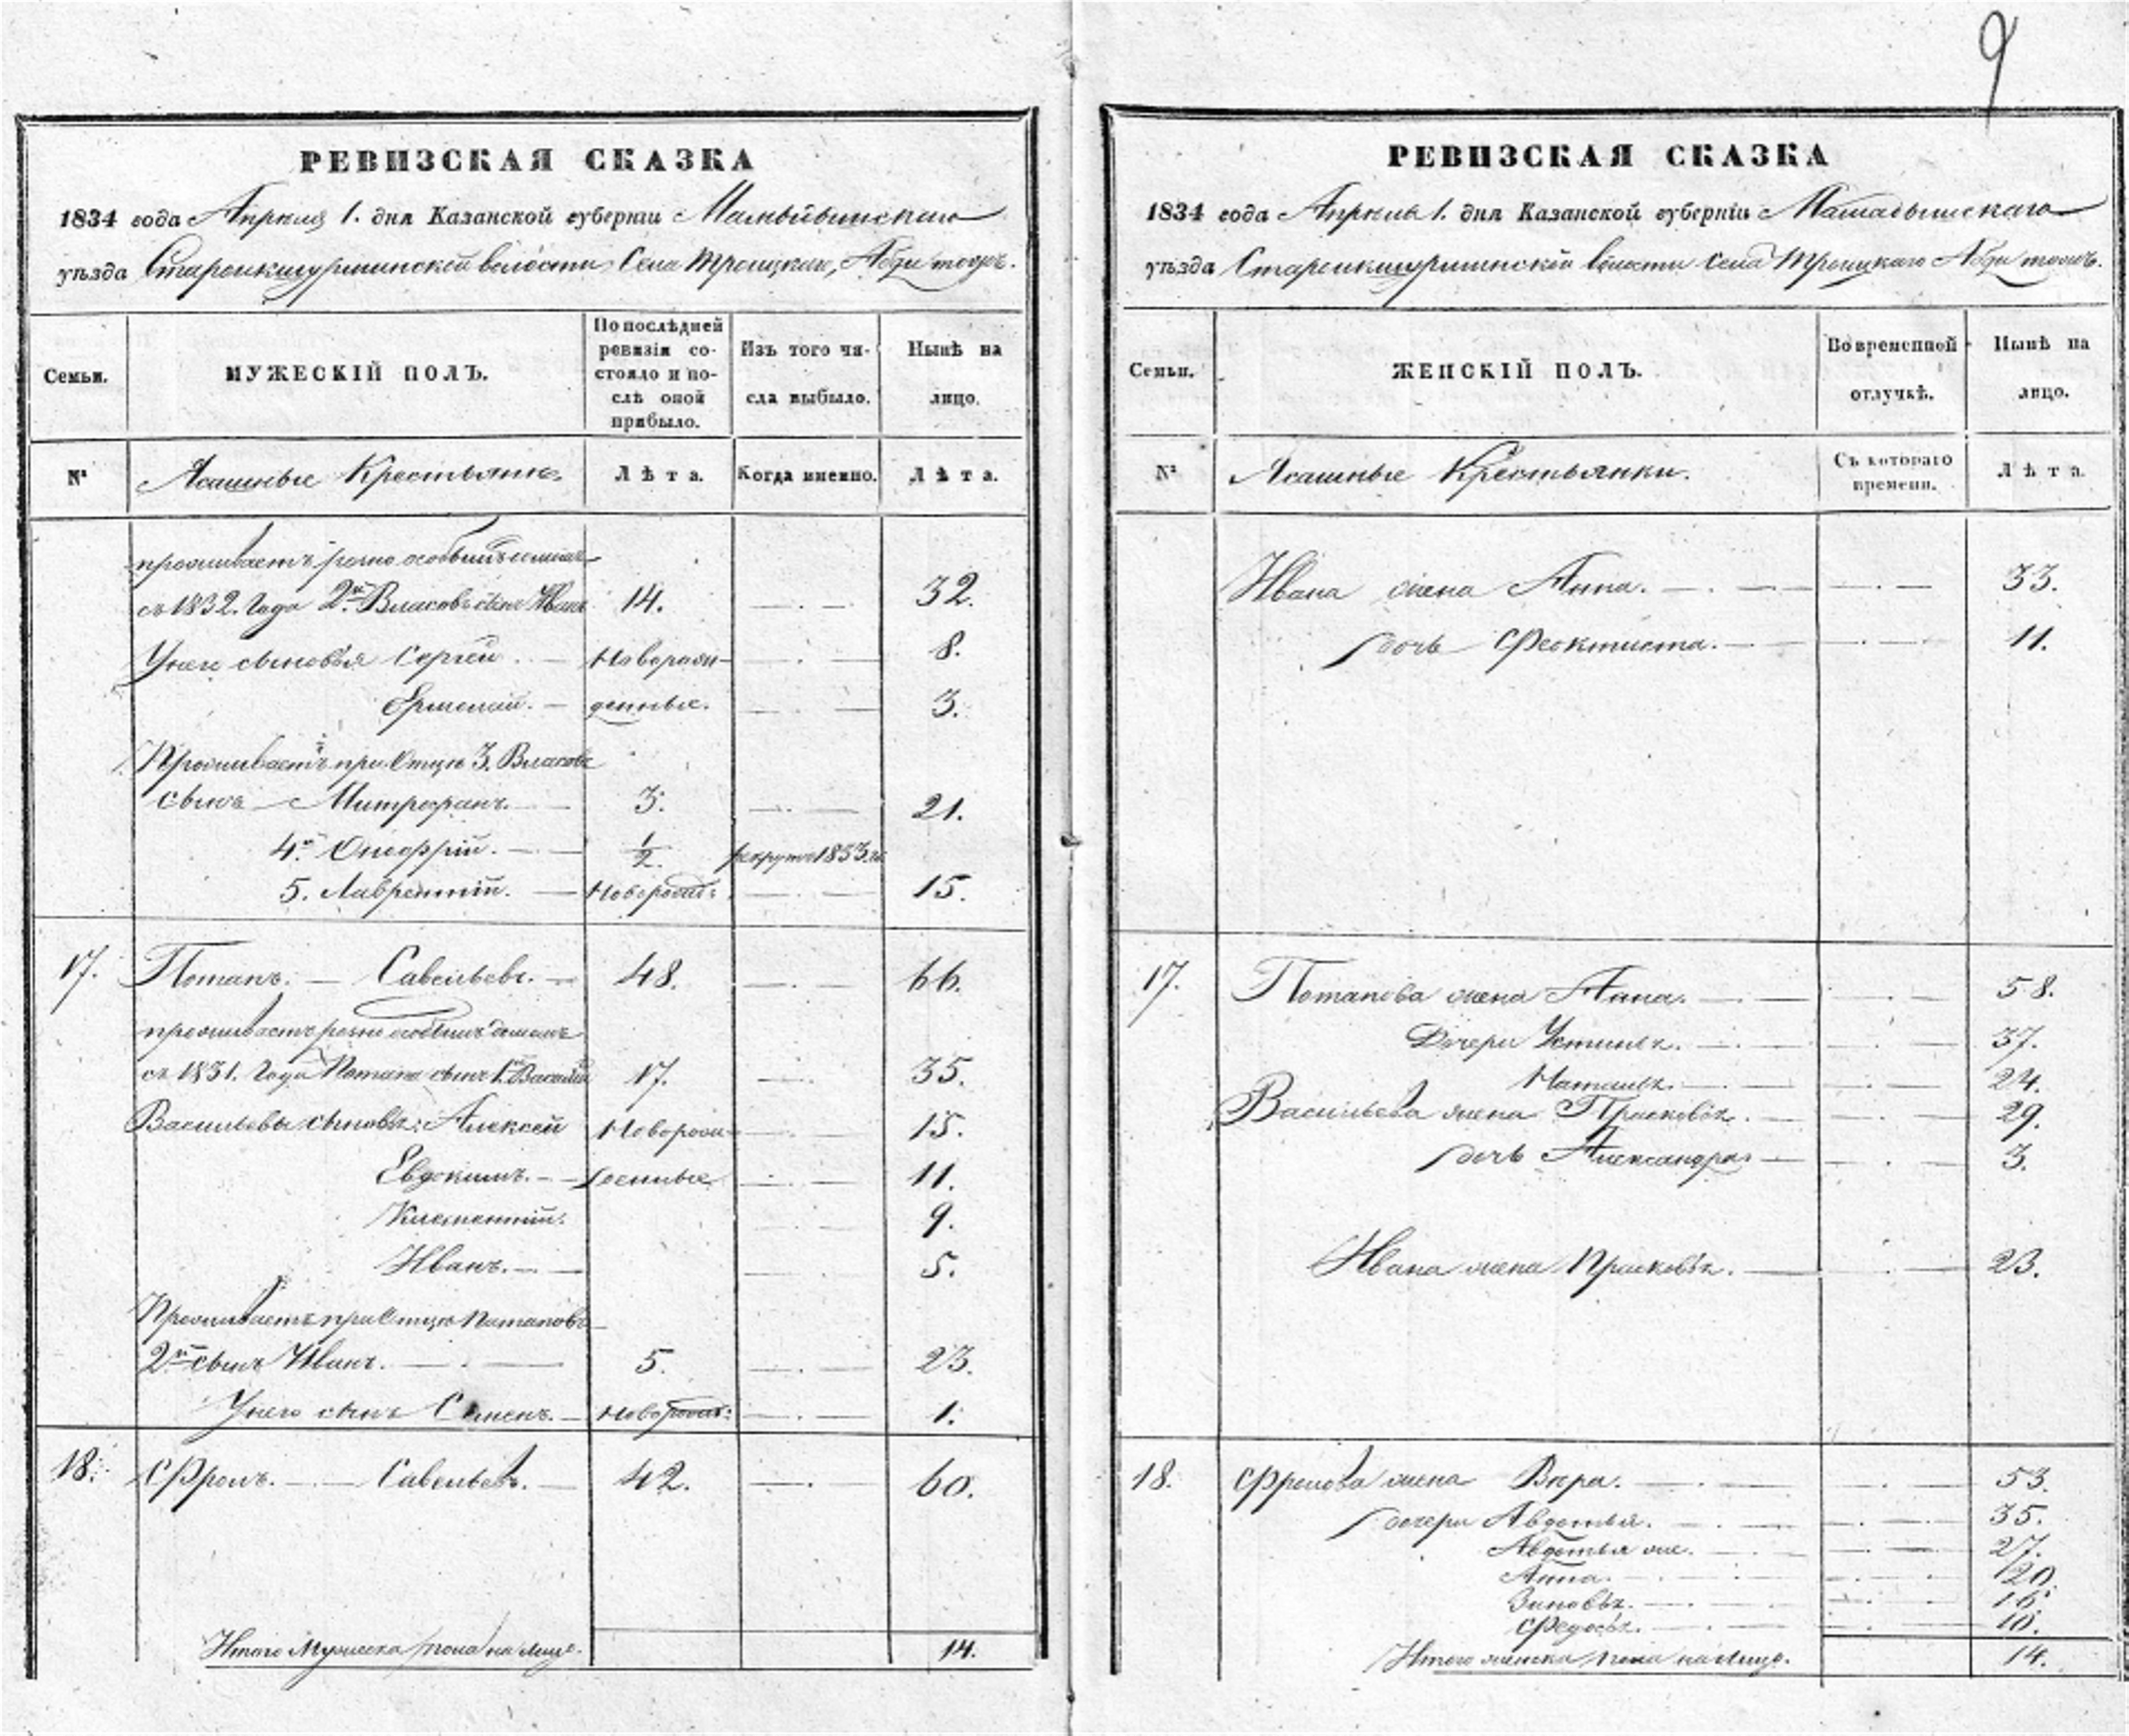 9
РЕВИЗСКАЯ СКАЗКА
1834 года Апреля 1. дня Казанской губерніи
уѣзда Старошигурминской волости Села Троицкаго,
Семьи.
МУЖЕСКІЙ ПОЛЪ.
По послѣдней
ревизіи со-
стояло и по-
слѣ оной
прибыло.
Изъ того чи-
сла выбыло.
Нынѣ на
лицо.
№
Ясашные Крестьяне.
Лѣта.
Когда именно.
Лѣта.
проживаетъ розно особымъ
съ 1832. Года 2й Власовъ сынъ Иванъ 14. 32.
У него сыновья Сергей. Новорож- 8.
денные. 3.
Проживаетъ при Отцѣ 3. Власовъ
сынъ Митрофанъ. 3. 21.
4й Онофрій. 1/2. рекрутъ 1833. г.
5. Лаврентій. Новорожд: 15.
17. Потапъ. Савельевъ. 48. 66.
проживаетъ розно особымъ домомъ
съ 1831. Года Потапа сынъ 1й Василій 17. 35.
Васильевы сыновья: Алексей Новорож- 15.
Евдокимъ. денные 11.
Климентій. 9.
Иванъ. 5.
Проживаетъ при Отцѣ Потаповъ
2й сынъ Иванъ. 5. 23.
У него сынъ Семенъ. Новорожд: 1.
18. Фролъ. Савельевъ. 42. 60.
Итого Мужеска пола на лице. 14.
РЕВИЗСКАЯ СКАЗКА
1834 года Апреля 1. дня Казанской губерніи Мамадышскаго
уѣзда Старошигурминской волости села Троицкаго
Семьи.
ЖЕНСКІЙ ПОЛЪ.
Во временной
отлучкѣ.
Нынѣ на
лицо.
№
Ясашные Крестьянки.
Съ котораго
времени.
Лѣта.
Ивана жена Анна. 33.
дочь Феоктиста. 11.
17. Потапова жена Анна. 58.
Дочери Устинья. 37.
Наталья. 24.
Васильева жена Прасковья. 29.
дочь Александра 3.
Ивана жена Прасковья. 23.
18. Фролова жена Вера. 53.
дочери Авдотья. 35.
Авдотья же. 27.
Анна. 20.
Зиновья. 16.
Федосья. 10.
Итого женска пола на лице. 14.